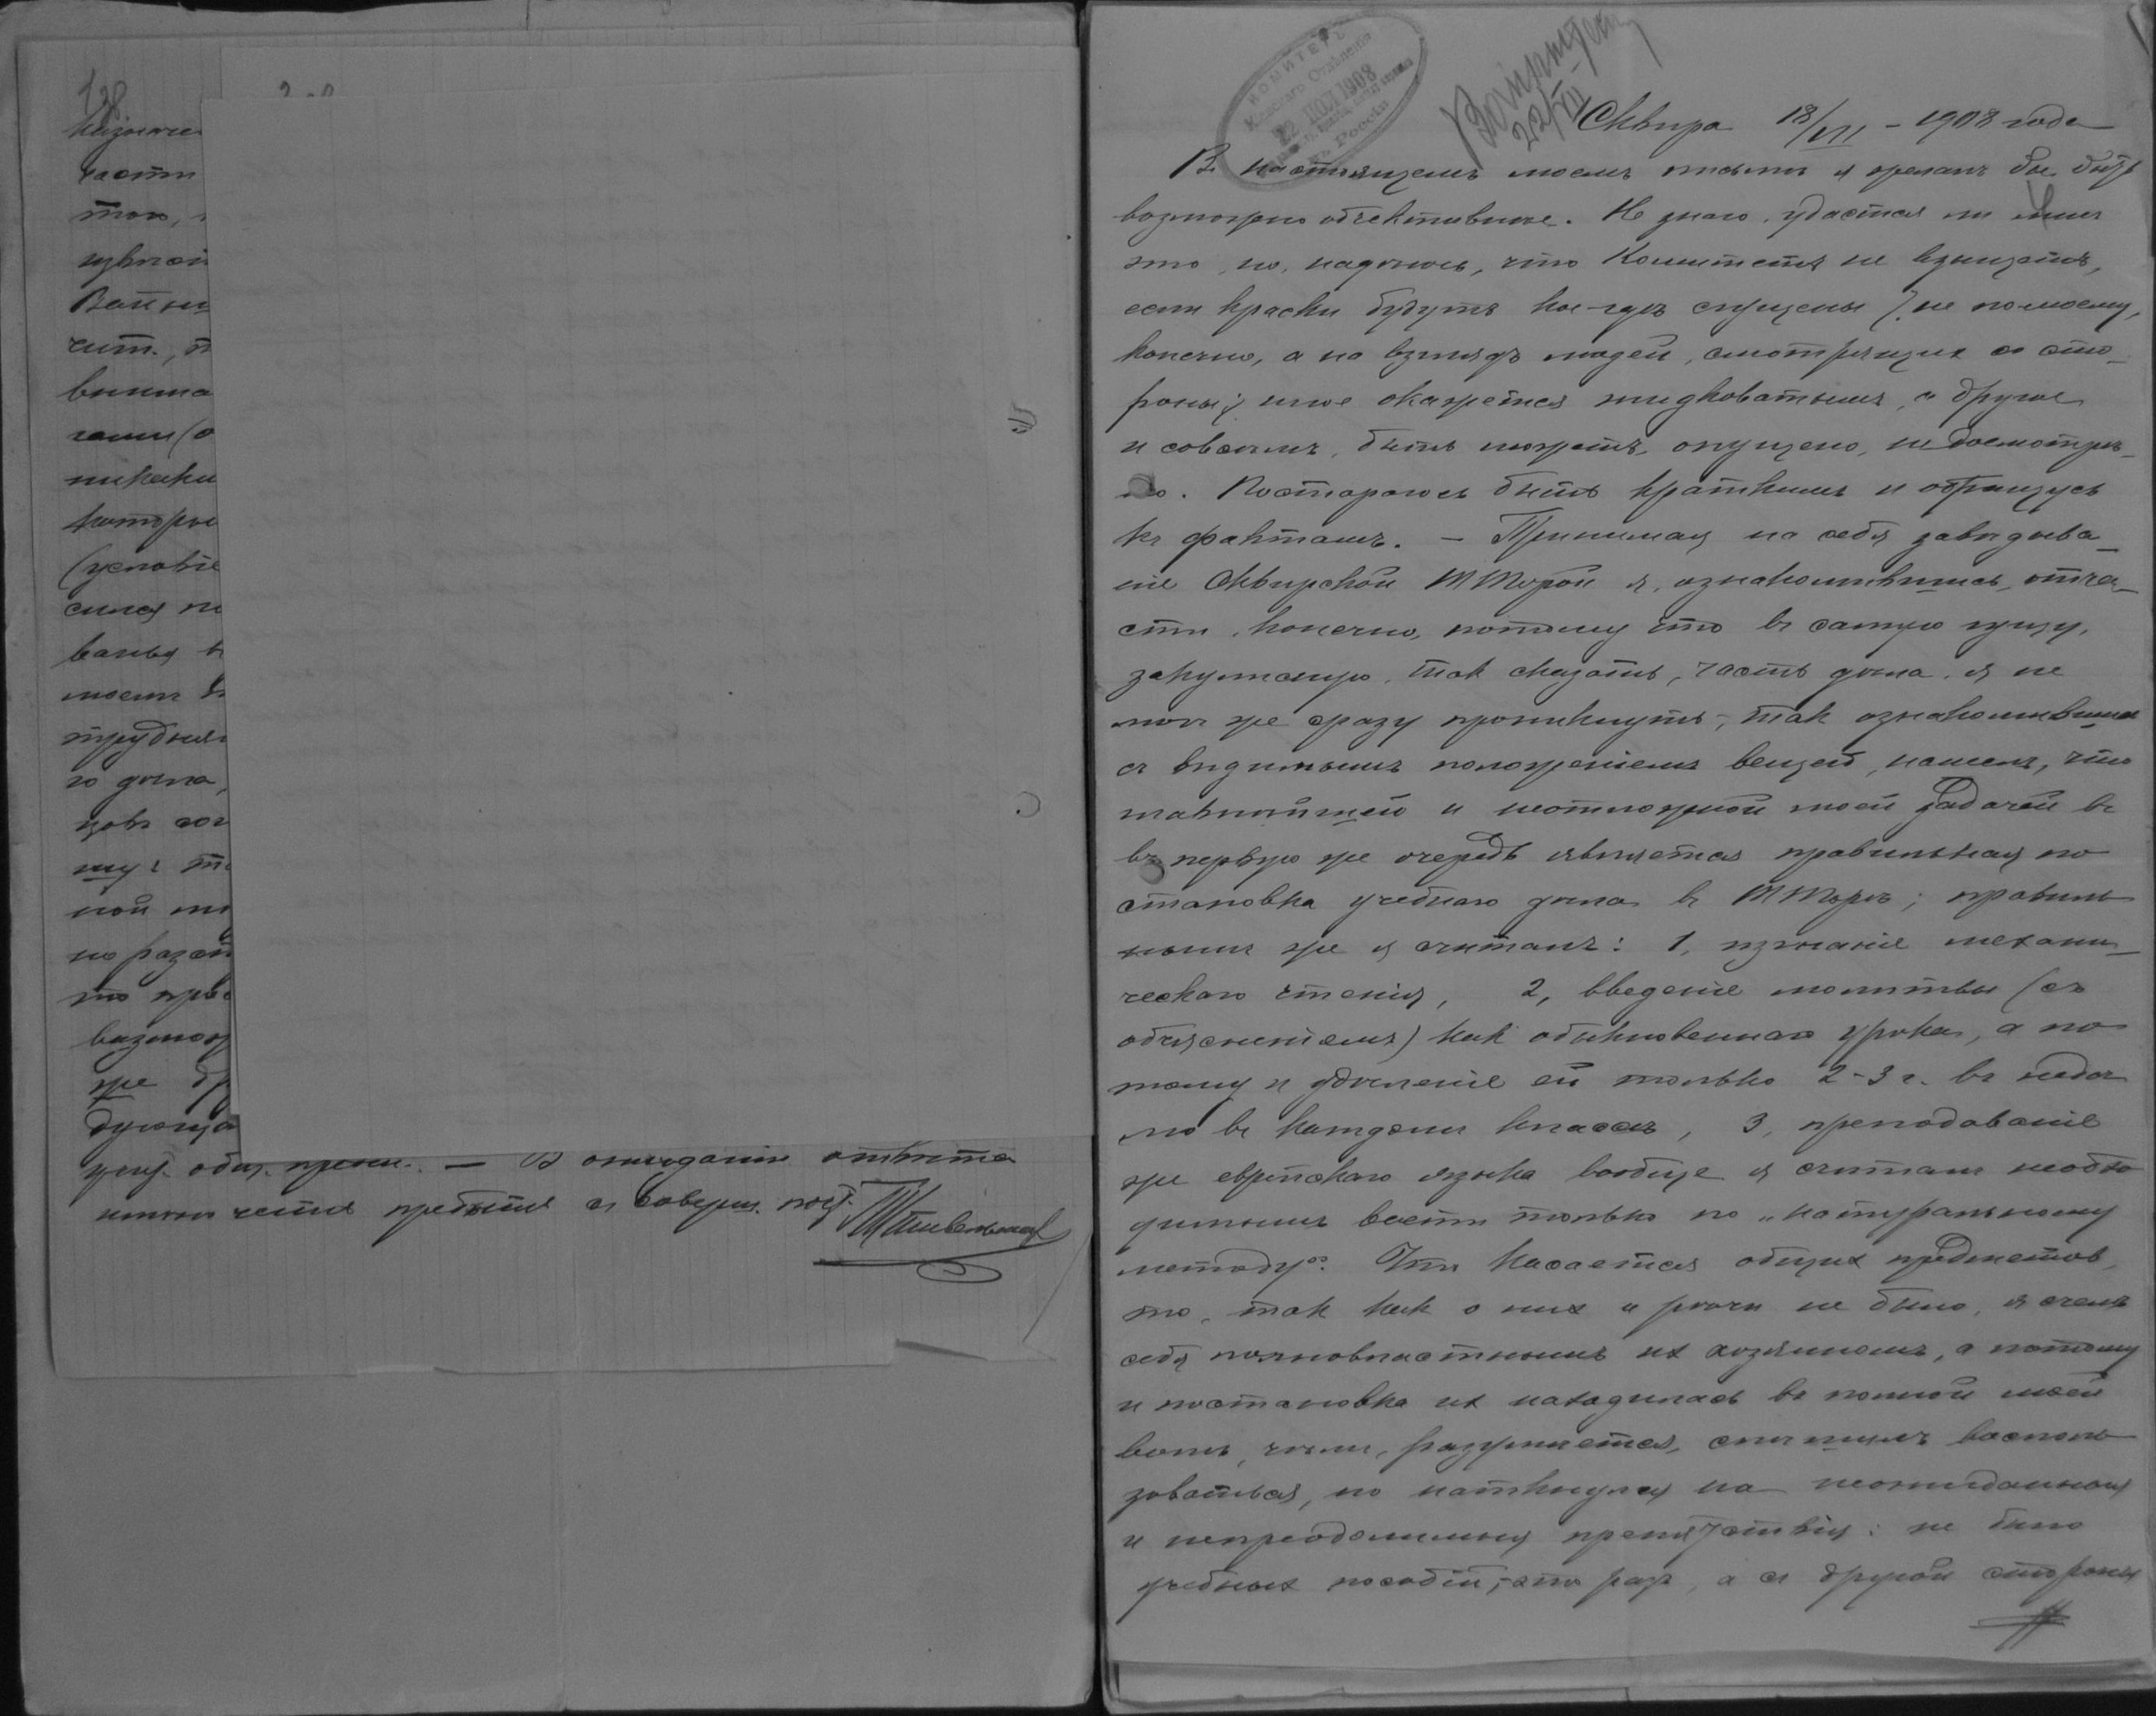 138
назначе
части
того,
Ваши
чит., п
внима
никаки
которы
(условіе
силъ по
ванья в
моемъ
трудня
го дѣла,
цовъ
щу: т
ной
не раз
это
возмож
же др
дующа
общ. — Въ ожиданіи отвѣта
имѣю честь пребыть съ соверш. поч.
КОМИТЕТЪ
Кіевскаго Отдѣленія
22 ІЮЛ 1908
въ Россіи
22/VII
Сквира 18/VII - 1908 года
Въ настоящемъ моемъ письмѣ я желалъ бы быть
возможно объективнѣе. Не знаю, удастся ли мнѣ
это, но, надѣюсь, что Комитетъ не взыщетъ,
если краски будутъ кое-гдѣ сгущены (не по моему,
конечно, а на взглядъ людей, смотрящихъ со сто-
роны), иное окажется жидковатымъ, а другое
и совсѣмъ, быть можетъ, опущено, недосмотрѣ-
но. Постараюсь быть краткимъ и обращусь
къ фактамъ. — Принимая на себя завѣдыва-
ніе Сквирской Т Торой я, ознакомившись, отча-
сти, конечно, потому что въ самую гущу,
закулисную, так сказать, часть дѣла, я не
могъ же сразу проникнуть, — так ознакомившись
съ видимымъ положеніемъ вещей, нашелъ, что
главнѣйшей и неотложной моей задачей въ
въ первую же очередь является правильная по
становка учебнаго дѣла въ Т Торѣ; правиль
нымъ же я считалъ: 1, изгнаніе механи-
ческаго чтенія, 2, введеніе молитвы (съ
объясненіемъ) как обыкновеннаго урока, а по
тому и удѣленіе ей только 2-3 ч. въ недѣ
лю въ каждомъ классѣ, 3, преподаваніе
же еврейскаго языка вообще я считалъ необхо
димымъ вести только по „натуральному
методу“. Что касается общих предметов,
то, так как о них и рѣчи не было, я счелъ
себя полновластнымъ их хозяиномъ, а потому
и постановка их находилась въ полной моей
волѣ, чѣмъ, разумѣется, спѣшилъ восполь
зоваться, но наткнулся на неожиданныя
и непреодолимыя препятствія: не было
учебных пособій, — это раз, а съ другой стороны